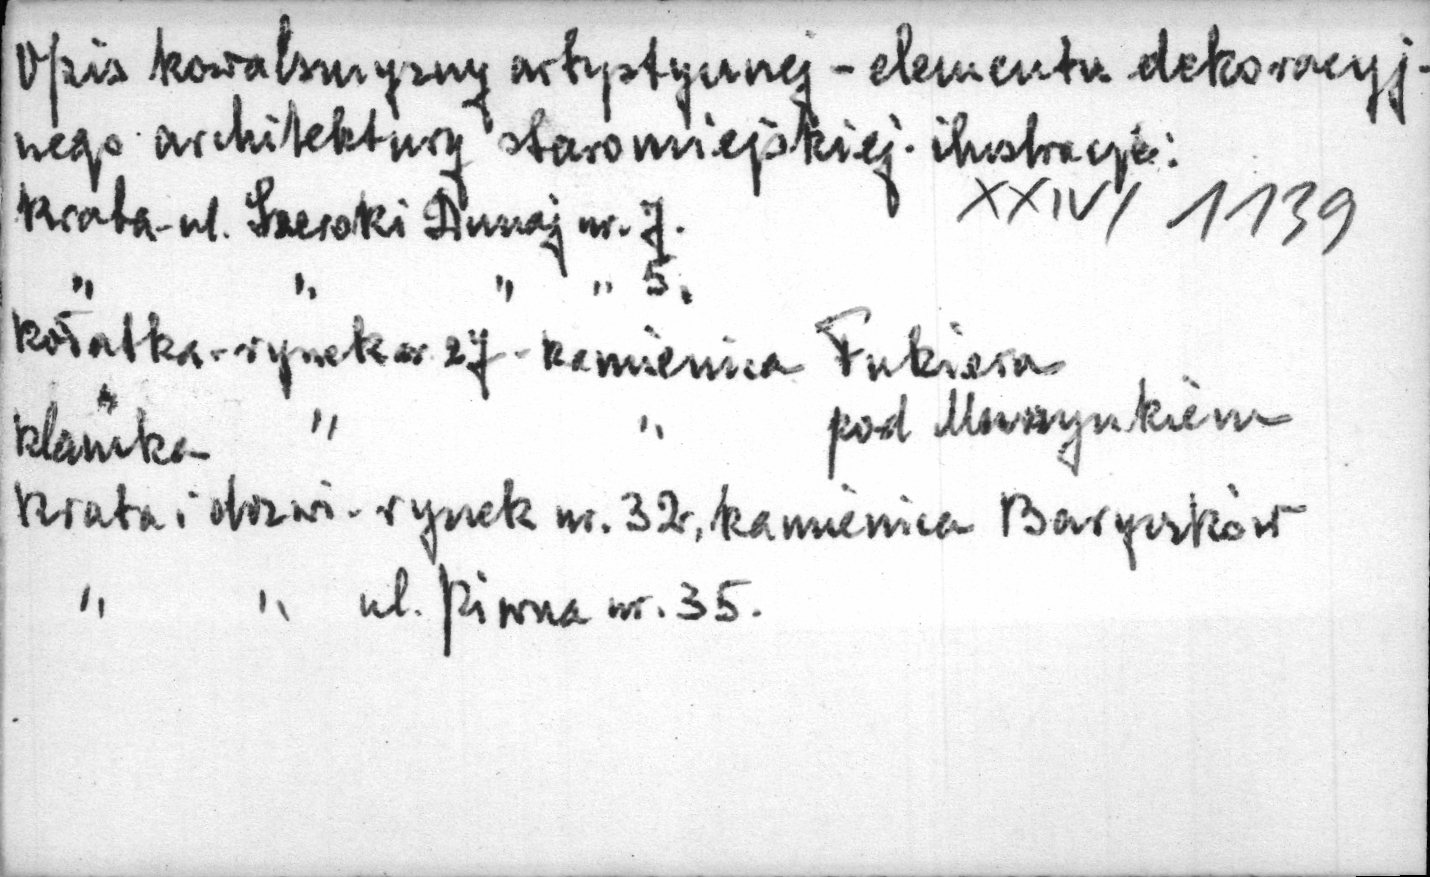 Opis kowalszczyzny artystycznej - elementu dekoracyj-
nego architektury staromiejskiej. ilustracje:
XXIV/1139
Krata - ul. Szeroki Dunaj nr. 7.
" " " " 5.
Kołatka - rynek nr 27 - kamienica Fukiera
Klamka " " pod Murzynkiem
Krata i drzwi - rynek nr. 32, kamienica Baryczków
" " ul. Piwna nr. 35.